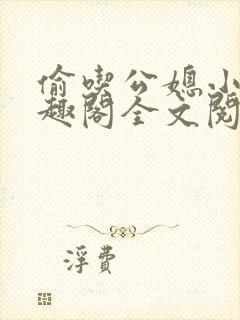 偷喫公媳小
趣閣全文閱
浮費